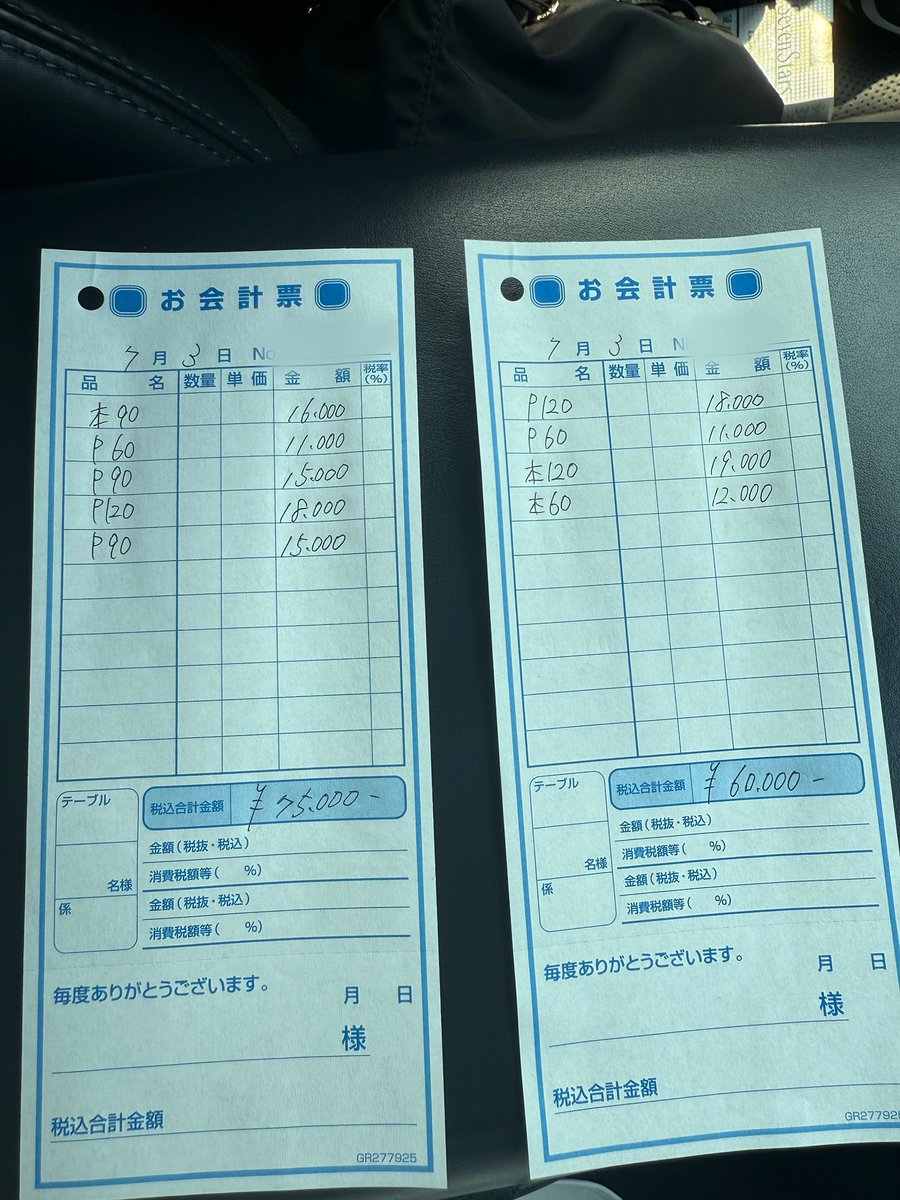 SevenStars
お会計票
7月3日 No
品名 数量 単価 金額 税率(%)
本90 16.000
P60 11.000
P90 15.000
P120 18.000
P90 15.000
テーブル
名様
係
税込合計金額 ¥75.000-
金額(税抜・税込)
消費税額等( %)
金額(税抜・税込)
消費税額等( %)
毎度ありがとうございます。
月 日
様
税込合計金額
GR277925
お会計票
7月3日 No
品名 数量 単価 金額 税率(%)
P120 18.000
P60 11.000
本120 19.000
本60 12.000
テーブル
名様
係
税込合計金額 ¥60.000-
金額(税抜・税込)
消費税額等( %)
金額(税抜・税込)
消費税額等( %)
毎度ありがとうございます。
月 日
様
税込合計金額
GR277925